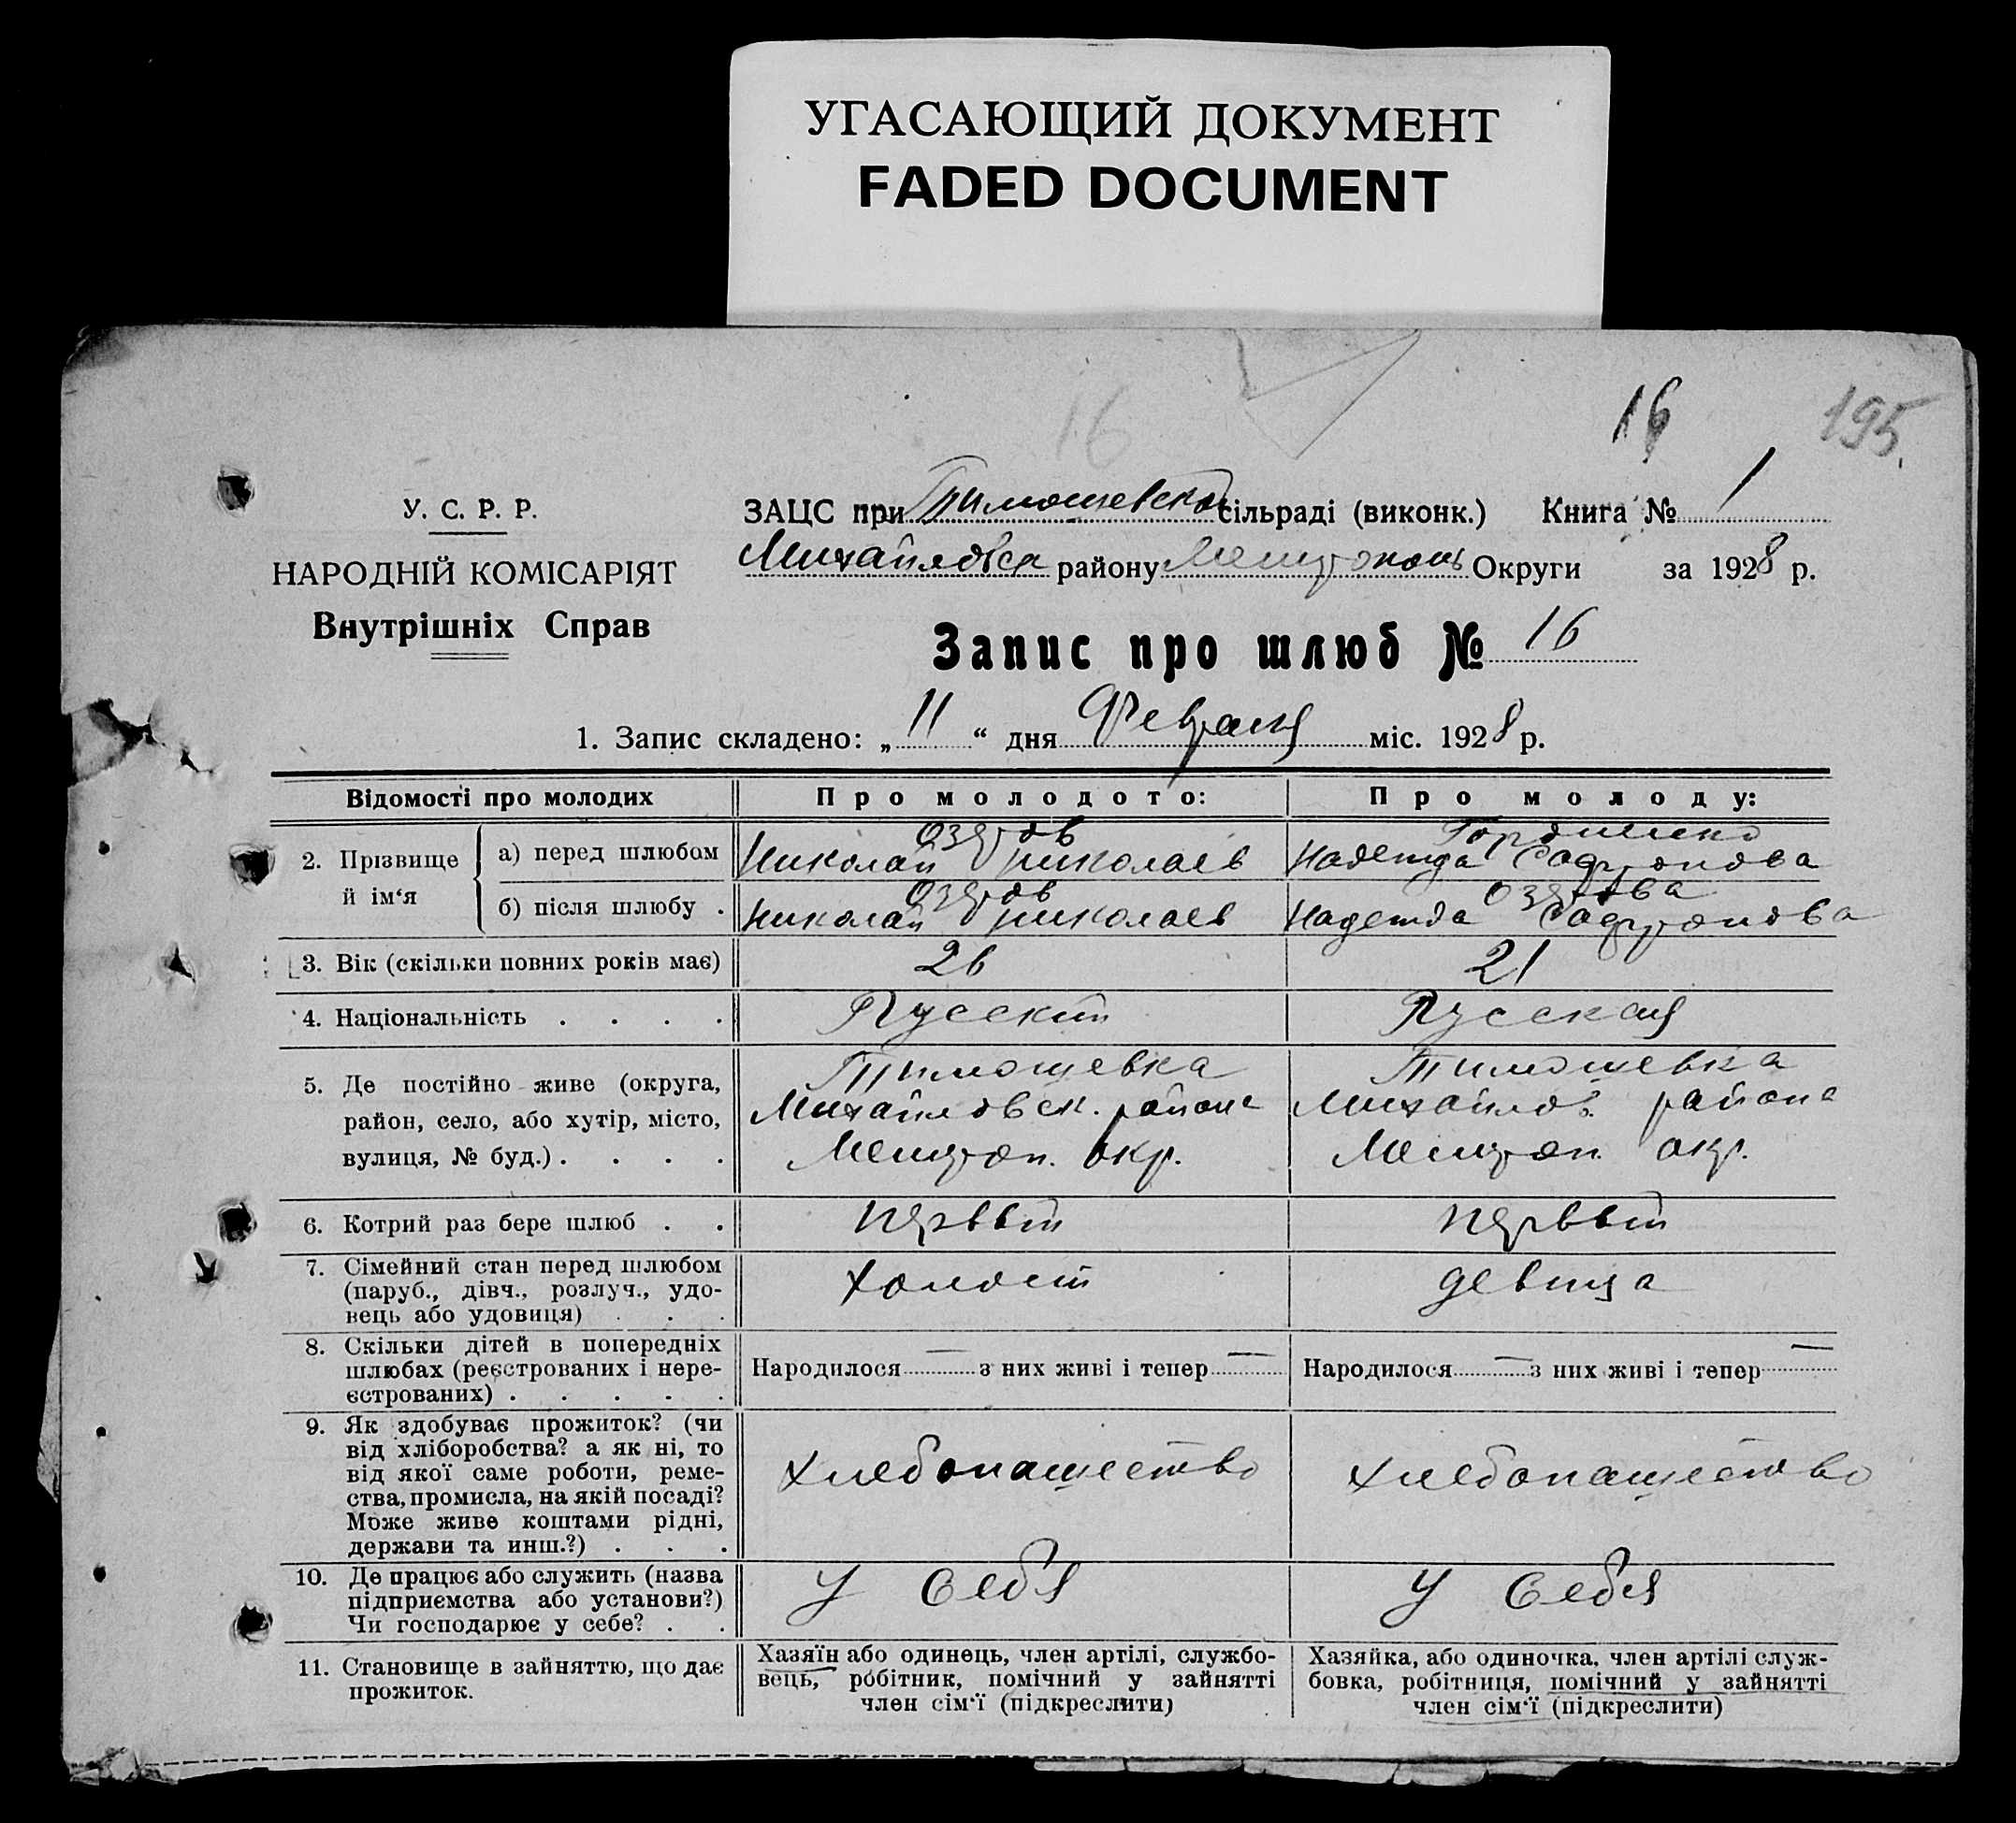 УГАСАЮЩИЙ ДОКУМЕНТ
FADED DOCUMENT
16
16
195
У. С. Р. Р.
НАРОДНІЙ КОМІСАРІЯТ
Внутрішніх Справ
ЗАЦС при Тимошевской сільраді (виконк.) Книга № 1
Михайловск району Мелитополь Округи за 1928 р.
Запис про шлюб № 16
1. Запис складено: „ 11 “ дня Февраля міс. 1928 р.
Відомості про молодих
Про молодого:
Про молоду:
2. Прізвище й ім‘я
а) перед шлюбом
Озеров
Николай Николаев
Гордиенко
Надежда Сафронова
б) після шлюбу .
Озеров
Николай Николаев
Озерова
Надежда Сафронова
3. Вік (скільки повних років має)
26
21
4. Національність . . . .
Русский
Русская
5. Де постійно живе (округа,
район, село, або хутір, місто,
вулиця, № буд.) . . . .
Тимошевка
Михайловск. района
Мелитоп. окр.
Тимошевка
Михайлов. района
Мелитоп. окр.
6. Котрий раз бере шлюб . .
первый
первый
7. Сімейний стан перед шлюбом
(паруб., дівч., розлуч., удо-
вець або удовиця) . . .
холост
девица
8. Скільки дітей в попередніх
шлюбах (реєстрованих і нере-
єстрованих) . . . . .
Народилося — з них живі і тепер —
Народилося — з них живі і тепер —
9. Як здобуває прожиток? (чи
від хліборобства? а як ні, то
від якої саме роботи, реме-
ства, промисла, на якій посаді?
Може живе коштами рідні,
держави та инш.?) . . .
хлебопашество
хлебопашество
10. Де працює або служить (назва
підприємства або установи?)
Чи господарює у себе? . .
У себя
У себя
11. Становище в зайняттю, що дає
прожиток.
Хазяїн або одинець, член артілі, службо-
вець, робітник, помічний у зайнятті
член сім‘ї (підкреслити)
Хазяйка, або одиночка, член артілі служ-
бовка, робітниця, помічний у зайнятті
член сім‘ї (підкреслити)